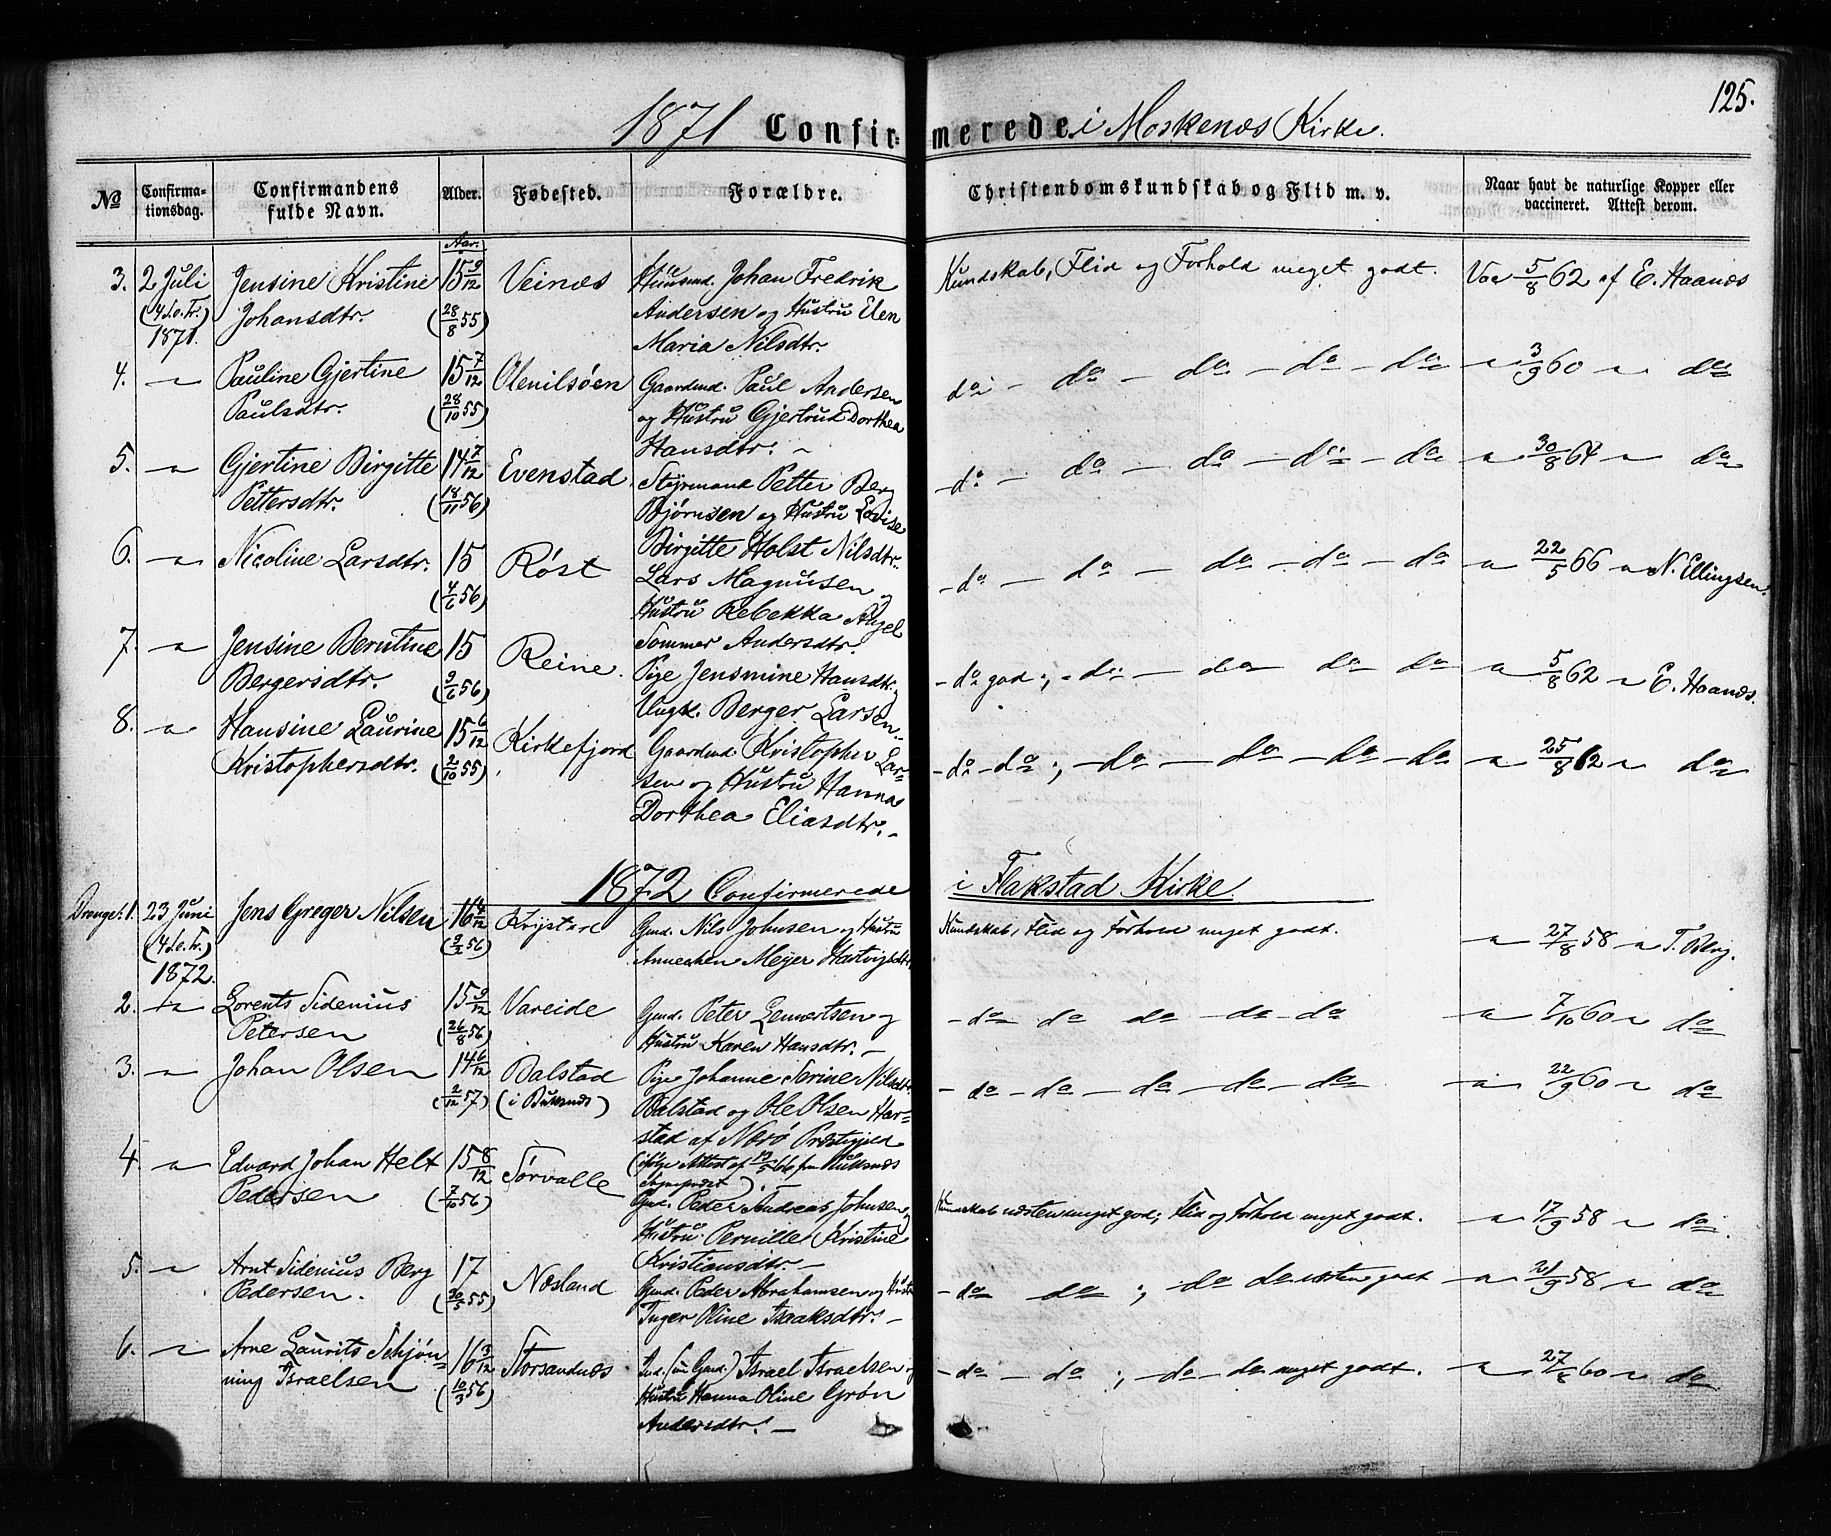 125.
1871 Confirmerede i Moskenæs Kirke.
№ Confirma-tionsdag. Confirmandens fulde Navn. Alder. Fødested. Forældre. Christendomskundskab og Flid m. v. Naar havt de naturlige Kopper eller vaccineret. Attest derom.
Aar.
3. 2 Juli Jensine Kristine 15 9/12 Veinæs Huusmd. Johan Fredrik Kundskab, Flid og Forhold meget godt. Vac 5/8 62 af E. Haanæs
(4 S. e. Tr.) Johansdtr. (28/8 55) Andersen og Hustru Elen
1871. Maria Nilsdtr.
4. — Pauline Gjertine 15 7/12 Olenilsøen Gaardmd. Paul Andersen do — do — do — do — do — 3/9 60 — do
Paulsdtr. (28/10 55) og Hustru Gjertrud Dorthea
Hansdtr. —
5. — Gjertine Birgitte 14 7/12 Evenstad Styrmand Petter Berg — do — do — do — do — do — 30/8 64 — do
Pettersdtr. (18/11 56) Bjørnsen og Hustru Lovise
Birgitte Holst Nilsdtr.
6. — Nicoline Larsdtr. 15 Røst Lars Magnusen og — do — do — do — do — do — 22/5 66 — N. Ellingsen.
(4/6 56) Hustru Rebekka Angel
Sommer Andersdtr.
7. — Jensine Berntine 15 Reine. Pige Jensmine Hansdtr. og — do god; — do — do do do — 5/8 62 — E. Haanæs.
Bergersdtr. (9/6 56) Ungk. Berger Larsen.
8. — Hansine Laurine 15 6/12 Kirkefjord Gaardmd. Kristopher Lar- — do — do; — do — do — do — do — 25/8 62 — do
Kristophersdtr. (2/10 55) sen og Hustru Hanna
Dorthea Eliasdtr. —
1872 Confirmerede i Flakstad Kirke
Drenge: 1. 23 Juni Jens Greger Nilsen 16 4/12 Gmd. Nils Johnsen og Hustru Kundskab, Flid og Forhold meget godt. — 27/8 58 — T. Berg.
(4 S. e. Tr.) (9/2 56) Annechen Meyer Hartvigsdtr.
1872.
2. — Lorents Sidenius 15 9/12 Vareide Gmd. Peter Lennertsen og — do do do — do — do — 7/10 60 — do
Petersen (26/8 56) Hustru Karen Hansdtr. —
3. — Johan Olsen 14 6/12 Balstad Pige Johanne Serine Nilsdtr. — do — do — do — do — do — 22/9 60 — do
(2/12 57) (i Buksnæs) Balstad og Ole Olsen Har-
stad af Nærø Præstegjeld
(ifølge Attest af 12/5 66 fra Buksnæs
Sognepræst). —
4. — Edvard Johan Helt 15 8/12 Sørvalle Gmd. Peder Andreas Johnsen og Kundskab næsten meget god; Flid og Forhold meget godt. — 17/9 58 — do.
Pedersen (7/10 56) Hustru Pernille Kristine
Kristiansdtr. —
5. — Arnt Sidenius Berg 17 Næsland Gmd. Peder Abrahamsen og Hustru — do do; do do næsten godt — 21/9 58 — do
Pedersen. (30/5 55) Inger Oline Isaaksdtr. —
6. — Arne Laurits Schjøn- 16 3/12 Storsandnæs Ind. (nu Gmd.) Israel Israelsen og — do — do; — do — do meget godt. — 27/8 60 — do
ning Israelsen (10/3 56) Hustru Hanna Oline Grøn
Andersdtr. —